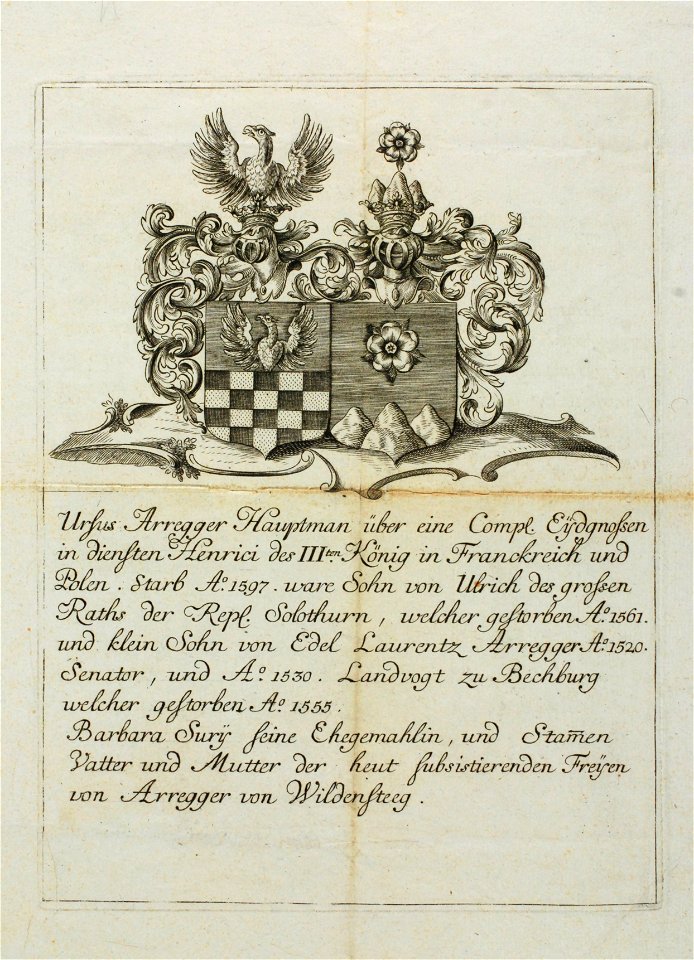 Ursus Arregger Hauptman über eine Compl. Eÿdgnossen
in diensten Henrici des IIIten König in Franckreich und
Polen. Starb Ao. 1597. ware Sohn von Ulrich des grossen
Raths der Repl. Solothurn, welcher gestorben Ao. 1561.
und klein Sohn von Edel Laurentz Arregger Ao. 1520.
Senator, und Ao. 1530. Landvogt zu Bechburg
welcher gestorben Ao. 1555.
Barbara Surÿ seine Ehegemahlin, und Stam̄en
Vatter und Mutter der heut subsistierenden Freÿen
von Arregger von Wildensteeg.